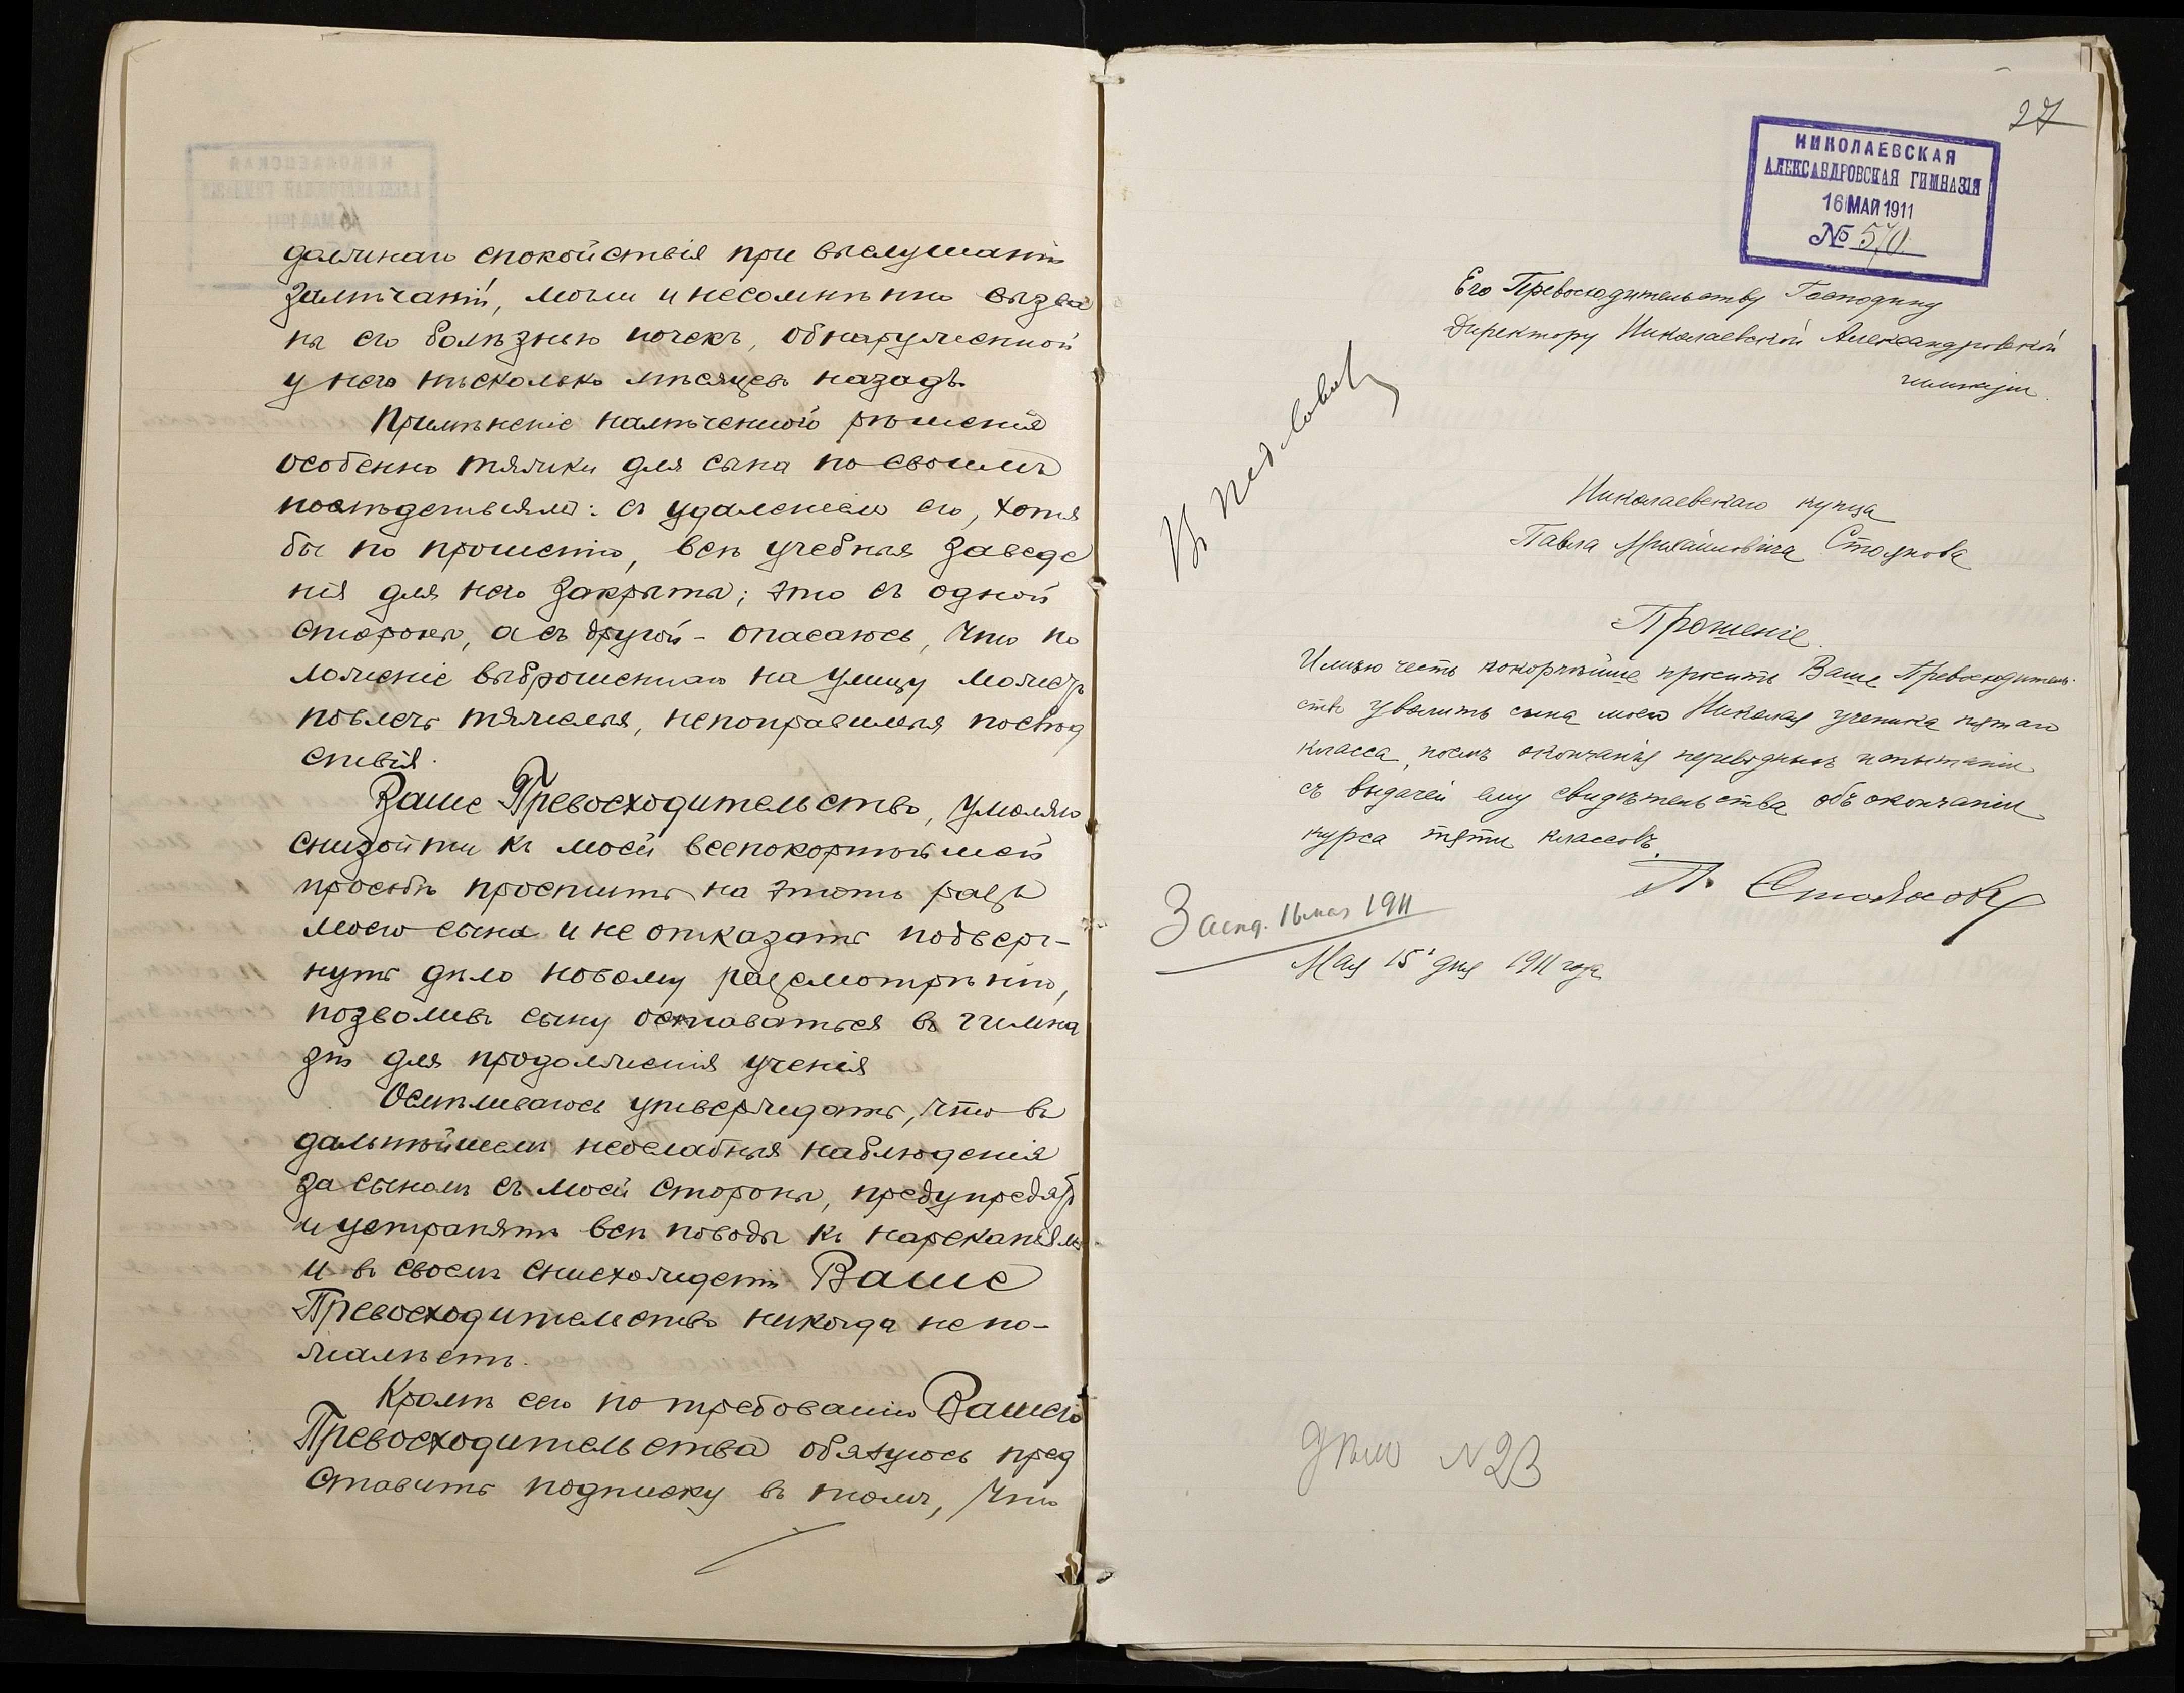 должнаго спокойствія при выслушаніи
замѣчаній, могли и несомнѣнно вызва
на его болѣзнью почекъ, обнаруженной
у него нѣсколько мѣсяцевъ назадъ.
Примѣненіе намѣченнаго рѣшенія
особенно тяжки для сына по своимъ
послѣдствіямъ: съ удаленіемъ его, хотя
бы по прошенію, всѣ учебныя заведе
нія для него закрыты; это съ одной
стороны, а съ другой - опасаюсь, что по
ложеніе выброшеннаго на улицу можетъ
повлечь тяжелыя, непоправимыя послѣд
ствія.
Ваше Превосходительство, умоляю
снизойти къ моей всепокорнѣйшей
просьбѣ простить на этотъ разъ
моего сына и не отказать подверг-
нуть дѣло новому разсмотрѣнію,
позволивъ сыну оставаться въ гимна
зіи для продолженія ученія
Осмѣливаюсь утверждать, что въ
дальнѣйшемъ неослабныя наблюденія
за сыномъ съ моей стороны, предупредятъ
и устранятъ всѣ поводы къ нареканіямъ
и въ своемъ снисхожденіи Ваше
Превосходительство никогда не по-
жалѣетъ.
Кромѣ сего по требованію Вашего
Превосходительства обязуюсь пред
ставить подписку въ томъ, что
27
НИКОЛАЕВСКАЯ
АЛЕКСАНДРОВСКАЯ ГИМНАЗІЯ
16 МАЯ 1911
№ 570
Его Превосходительству Господину
Директору Николаевской Александровской
гимназіи.
Въ пед. совѣтъ
Николаевскаго купца
Павла Михайловича Стоянова
Прошеніе.
Имѣю честь покорнѣйше просить Ваше Превосходитель-
ство уволить сына моего Николая ученика пятаго
класса, послѣ окончанія переводныхъ испытаній
съ выдачей ему свидѣтельства объ окончаніи
курса пяти классовъ.
П. Стояновъ
Засѣд. 16 мая 1911
Мая 15 дня 1911 года
дѣло N 23